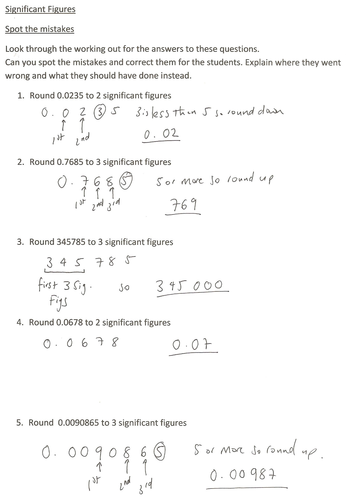 Significant Figures
Spot the mistakes
Look through the working out for the answers to these questions.
Can you spot the mistakes and correct them for the students. Explain where they went
wrong and what they should have done instead.
1. Round 0.0235 to 2 significant figures
0.02③5 3 is less than 5 so round down
1st 2nd
0.02
2. Round 0.7685 to 3 significant figures
0.768⑤ 5 or more so round up
1st 2nd 3rd
769
3. Round 345785 to 3 significant figures
345785
first 3 sig. so 345000
Figs
4. Round 0.0678 to 2 significant figures
0.0678 0.07
5. Round 0.0090865 to 3 significant figures
0.009086⑤ 5 or more so round up.
1st 2nd 3rd
0.00987